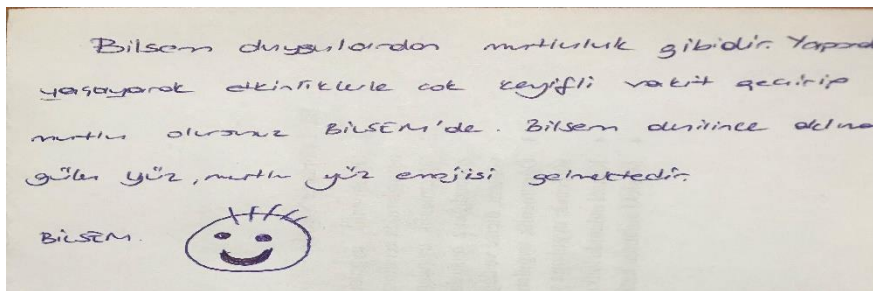 Bilsem duygulardan mutluluk gibidir. Yapar
yaşayarak etkinliklerle çok keyifli vakit geçirip
mutlu olursunuz BİLSEM'de. Bilsem denilince aklıma
güler yüz, mutlu yüz emojisi gelmektedir.
BİLSEM.